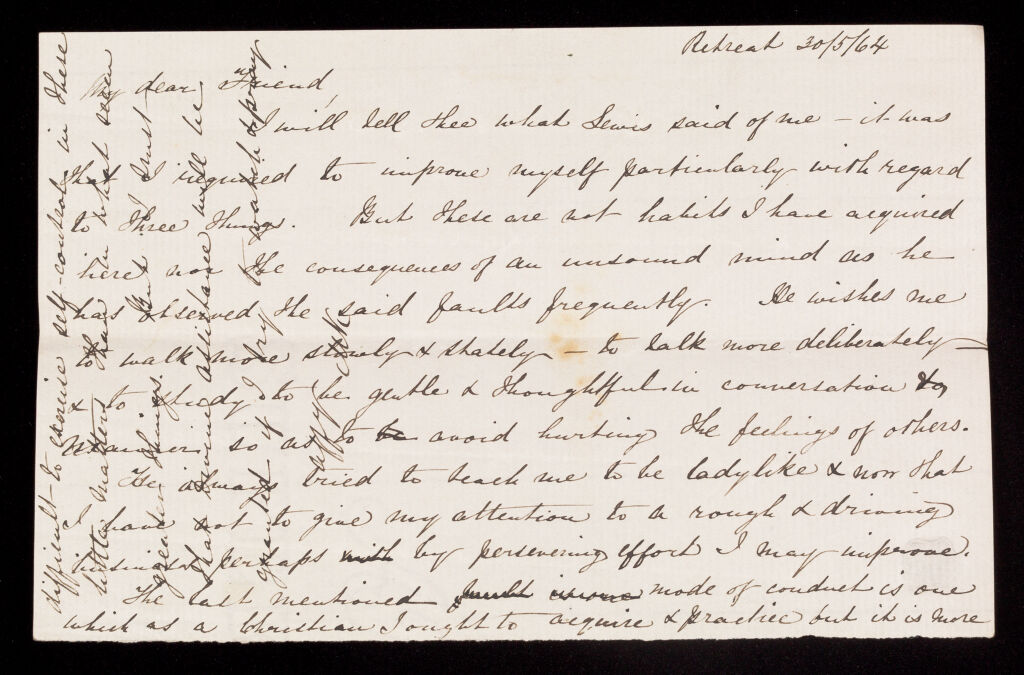 Retreat 30/5/64
My dear Friend,
I will tell thee what Lewis said of me – it was
that I required to improve myself particularly with regard
to three things. But these are not habits I have acquired
here nor the consequences of an unsound mind as he
has observed the said faults frequently. He wishes me
to walk more slowly & stately – to talk more deliberately –
& to study to be gentle & thoughtful in conversation &
manner so as to be avoid hurting the feelings of others.
He always tried to teach me to be ladylike & now that
I have not to give my attention to a rough & driving
business perhaps with by persevering effort I may improve.
The last mentioned mode of conduct is one
which as a Christian I ought to acquire & practice but it is more
difficult to exercise self-control in these
little matters than in what seem
greater things. But I trust
that divine assistance will be
granted if I try to watch & pray